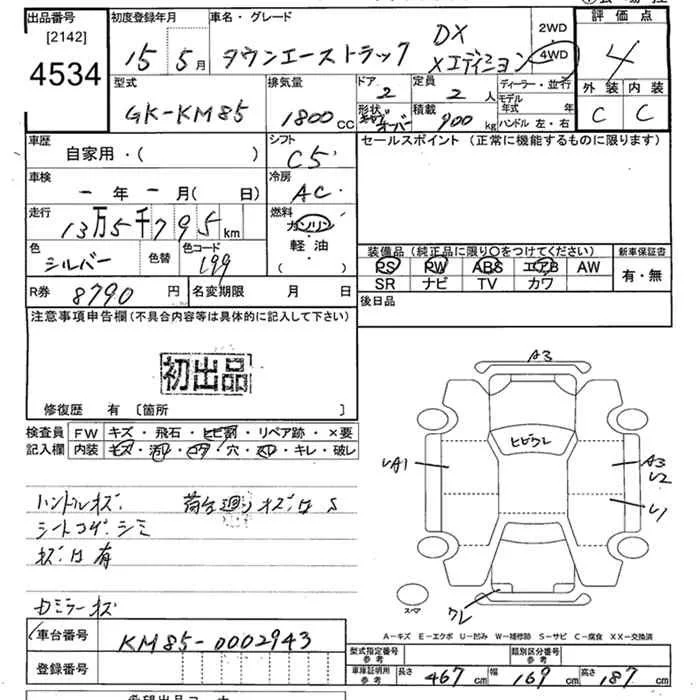 出品番号 初度登録年月 車名・グレード 評価点
[2142] 15 5月 タウンエーストラック DX Xエディション 2WD 4WD 4
4534
型式 排気量 ドア 定員 ディーラー・並行 外装 内装
GK-KM85 1800cc 2 2人 モデル年式 年 C C
形状 積載 900kg ハンドル 左・右
車歴 シフト セールスポイント (正常に機能するものに限ります)
自家用・( ) C5
車検 冷房
ー年ー月( 日) AC
走行 燃料
13万5千795km ガソリン
軽油
( )
色 色替 色コード 装備品(純正品に限り○をつけてください) 新車保証書
シルバー 199 PS PW ABS エアB AW 有・無
SR ナビ TV カワ
R券 8790円 名変期限 月 日 後日品
注意事項申告欄(不具合内容等は具体的に記入して下さい)
初出品
修復歴 有 [箇所 ]
検査員 FW キズ・飛石・ヒビ割・リペア跡・×要
記入欄 内装 キズ・汚レ・コゲ・穴・スレ・キレ・破レ
A3
ヒビワレ
UA1
A3
U2
U1
ワレ
スペア
ハンドルキズ 荷台廻りキズ凹S
シートコゲ・シミ
キズ凹有
A-キズ E-エクボ U-凹み W-補修跡 S-サビ C-腐食 XX-交換済
車台番号 KM85-0002943
登録番号
型式指定番号 参考 類別区分番号 参考
車庫証明用 参考 長さ 467cm 幅 169cm 高さ 187cm